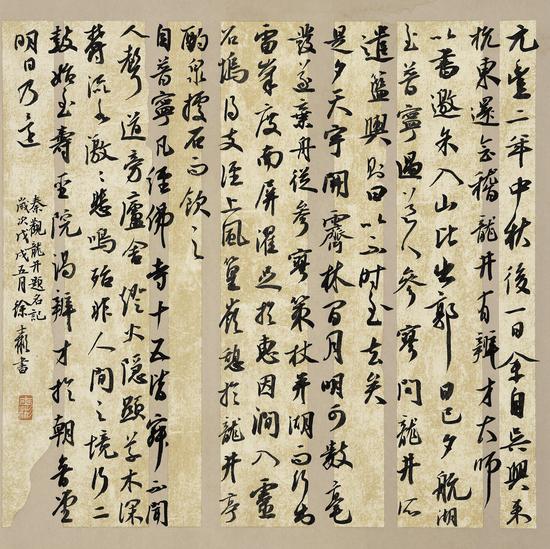 元豐二年中秋後一日余自吳興來
杭東還會稽龍井有辨才大師
以書邀余入山比出郭日已夕航湖
至普寧遇道人參寥問龍井所
遣籃輿則曰以不時至去矣
是夕天宇開霽林間月明可數毫
髮遂棄舟從參寥策杖并湖而行出
雷峯度南屏濯足於惠因澗入靈
石塢得支徑上風篁嶺憩於龍井亭
酌泉據石而飲之
自普寧凡經佛寺十五皆寂不聞
人聲道旁廬舍燈火隱顯草木深
鬱流水激激悲鳴殆非人間之境行二
鼓始至壽聖院謁辨才於朝音堂
明日乃還
秦觀龍井題名記
歲次戊戌五月徐書